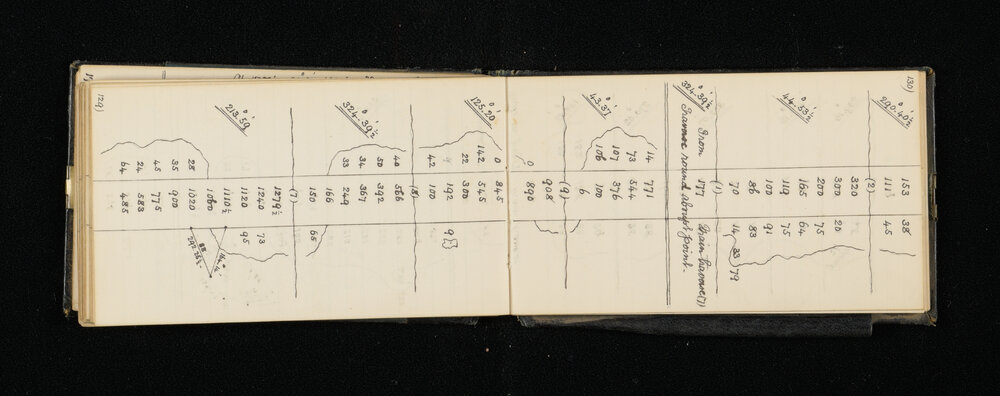 130)
290.40½
153 38
111 45
(2)
320
44.53½
300 20
200 75
165 64
119 75
100 91
86 83
70 14 33 79
(1)
From 177 Main traverse (7)
Traverse round abrupt point.
324.39½
14 771
73 544
107 376
43.37
106 100
6
(9)
908
0 890
0 845
125.20
142 545
22 300
9 192 9
42 100
(8)
40 566
50 392
324.39½
34 367
33 249
166
150 65
(7)
1279½
1240 73
1120 95
213.59
1110½
1060
28 1020 88 292.26½
35 900
45 775
24 583
64 485
129)